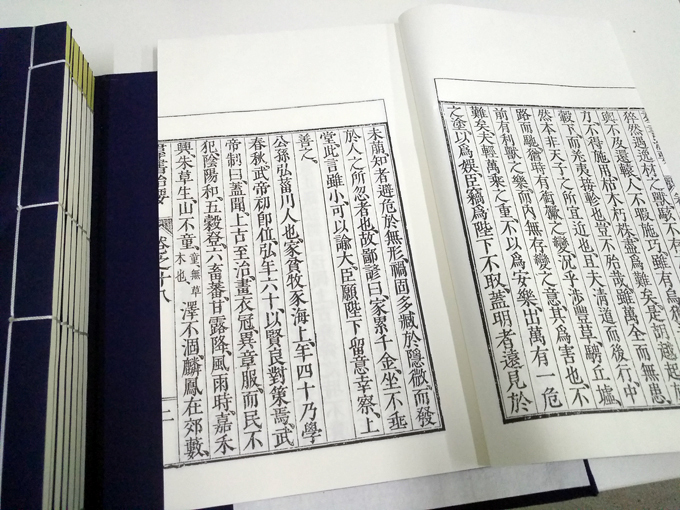 猝然遇逸材之獸駭不
輿不及還轅人不暇施巧雖有烏
力不得施用枯木朽株盡爲難矣是胡越起
轂下而羌夷接軫也豈不殆哉雖萬全而無患
然本非天子之所宜近也且夫清道而後行中
路而馳猶時有銜橛之變況乎涉豐草騁丘墟
前有利獸之樂而內無存變之意其爲害也不
難矣夫輕萬乘之重不以爲安樂出萬有一危
之塗以爲娛臣竊爲陛下不取蓋明者遠見於
未萠知者避危於無形禍固多藏於隱微而發
於人之所忽者也故鄙諺曰家累千金坐不垂
堂此言雖小可以諭大臣願陛下留意幸察上
善之
公孫弘菑川人也家貧牧豕海上年四十乃學
春秋武帝初卽位弘年六十以賢良對策焉武
帝制曰蓋聞上古至治畫衣冠異章服而民不
犯陰陽和五穀登六畜蕃甘露降風雨時嘉禾
興朱草生山不童童無草木也澤不涸麟鳳在郊藪
書治要 卷之十八